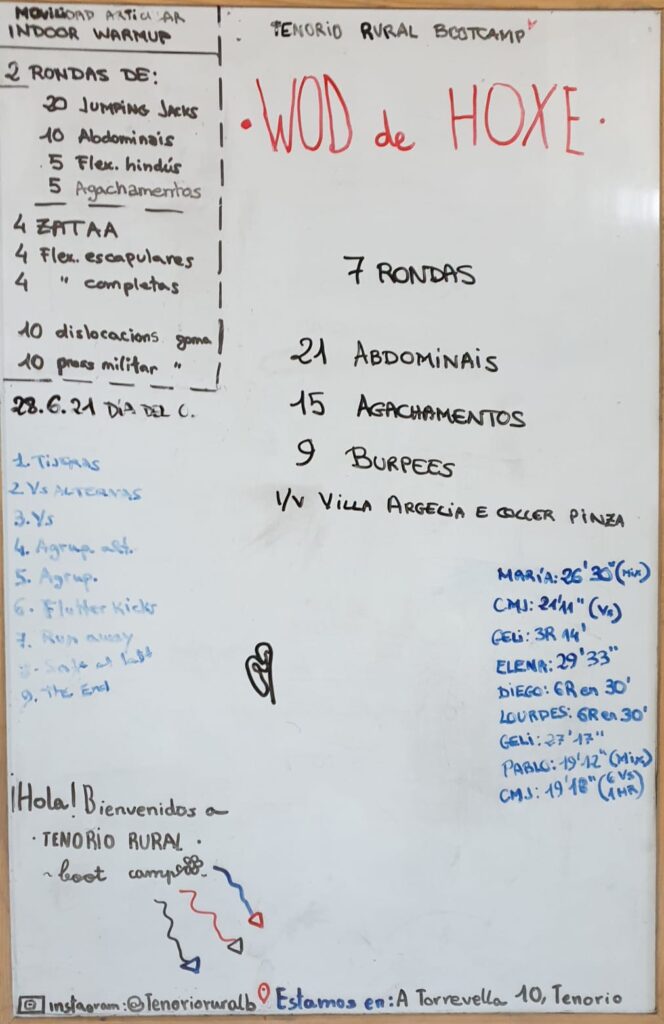 MOVILIDAD ARTICULAR
INDOOR WARMUP
2 RONDAS DE:
20 JUMPING JACKS
10 Abdominais
5 Flex. hindús
5 Agachamentos
4 ZATAA
4 Flex. escapulares
4 " completas
10 dislocacions goma
10 press militar "
28.6.21 DÍA DEL C.
1. TIJERAS
2. Vs ALTERNAS
3. Vs
4. Agrup. alt.
5. Agrup.
6. Flutter Kicks
7. Run away
8. Safe at last
9. The End
TENORIO RURAL BOOTCAMP
• WOD de HOXE •
7 RONDAS
21 ABDOMINAIS
15 AGACHAMENTOS
9 BURPEES
I/V VILLA ARGELIA E COLLER PINZA
MARÍA: 26'30" (Mix)
CMJ: 21'11" (Vs)
GELI: 3R 14'
ELENA: 29'33"
DIEGO: 6R en 30'
LOURDES: 6R en 30'
GELI: 27'17"
PABLO: 19'12" (Mix)
CMJ: 19'18" (6 Vs 1 MR)
¡Hola! Bienvenidos a
· TENORIO RURAL ·
~ boot camp
instagram: @Tenorioruralb Estamos en: A Torrevella 10, Tenorio